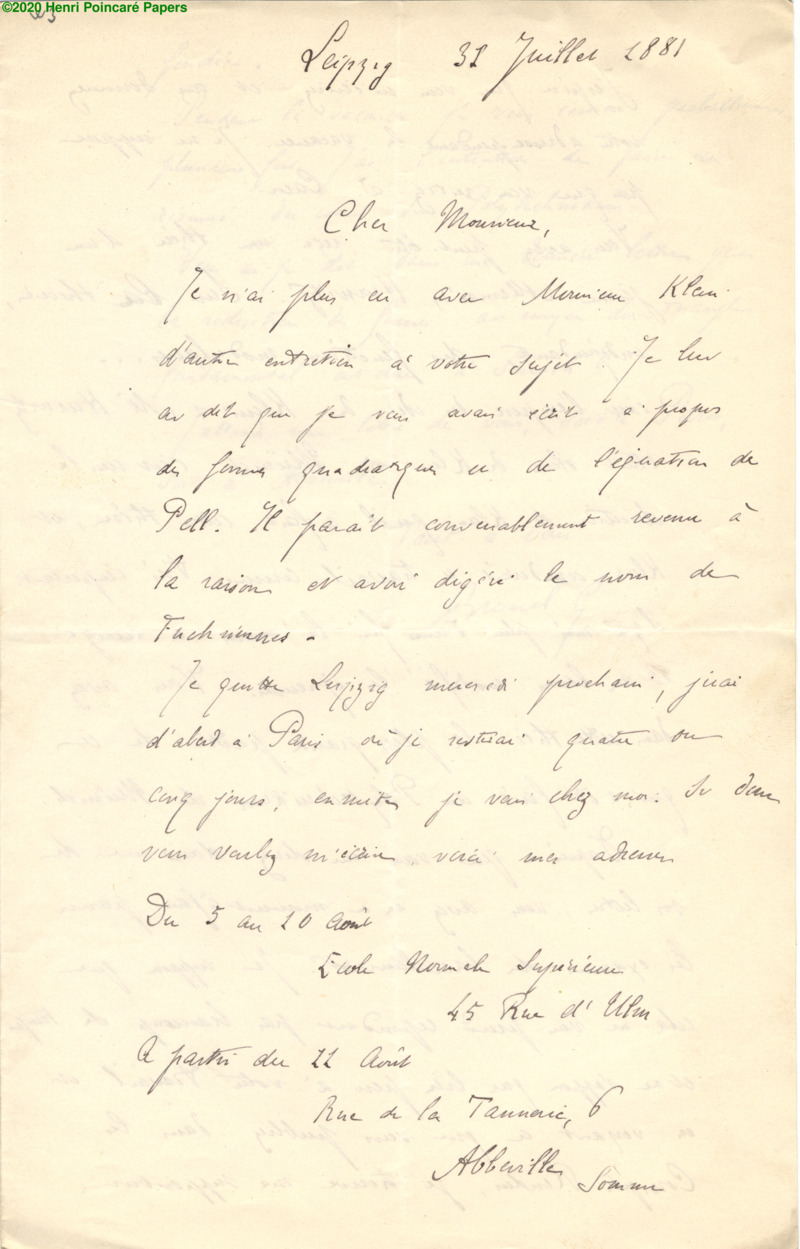 ©2020 Henri Poincaré Papers
Leipzig 31 Juillet 1881
Cher Monsieur,
Je n'ai plus eu avec Monsieur Klein
d'autre entretien à votre sujet. Je lui
ai dit que je vous avais écrit à propos
des formes quadratiques et de l'équation de
Pell. Il paraît convenablement revenu à
la raison et avoir digéré le nom de
Fuchsiennes.
Je quitte Leipzig mercredi prochain, j'irai
d'abord à Paris où je resterai quatre ou
cinq jours, ensuite je vais chez moi. Si donc
vous voulez m'écrire voici mes adresses
Du 5 au 10 Août
Ecole Normale Supérieure
45 Rue d'Ulm
A partir du 11 Août
Rue de la Tannerie, 6
Abbeville
Somme